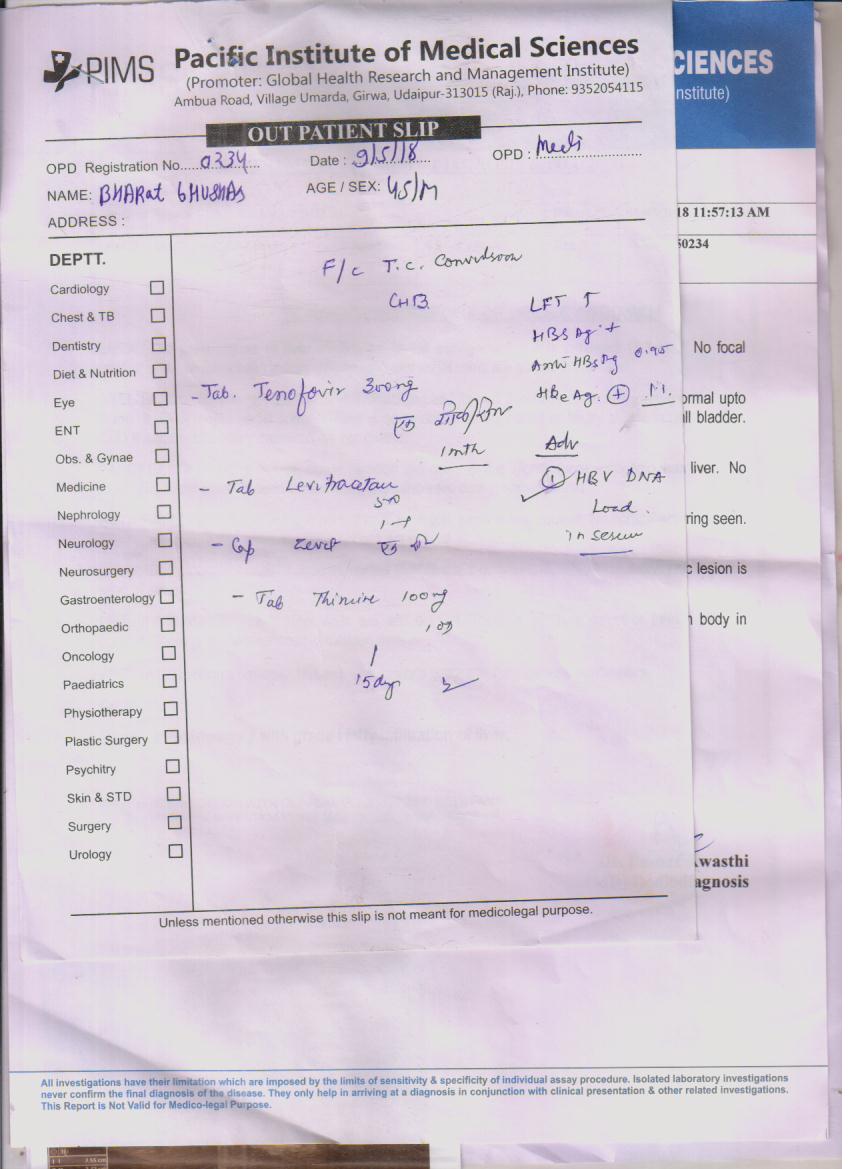 PIMS
Pacific Institute of Medical Sciences
(Promoter: Global Health Research and Management Institute)
Ambua Road, Village Umarda, Girwa, Udaipur-313015 (Raj.), Phone: 9352054115
OUT PATIENT SLIP
OPD Registration No. 0234 Date : 9/5/18 OPD : Medi
NAME: BHARat bHUSHAS AGE / SEX: 45/M
ADDRESS :
DEPTT.
Cardiology
Chest & TB
Dentistry
Diet & Nutrition
Eye
ENT
Obs. & Gynae
Medicine
Nephrology
Neurology
Neurosurgery
Gastroenterology
Orthopaedic
Oncology
Paediatrics
Physiotherapy
Plastic Surgery
Psychitry
Skin & STD
Surgery
Urology
F/c T.c. Convulsion
CHB
LFT ↑
HBSAg +
Anti HBsAg 0.95
HBeAg. +
- Tab. Tenofovir 300mg
एक
1 mth
Adv
① HBV DNA
Load.
in serum
- Tab Levitiracetam
500
- Cap Zevit एक
- Tab Thimine 100mg
1 OD
15 day
Unless mentioned otherwise this slip is not meant for medicolegal purpose.
CIENCES
nstitute)
18 11:57:13 AM
50234
No focal
ormal upto
ll bladder.
liver. No
ring seen.
c lesion is
body in
wasthi
agnosis
All investigations have their limitation which are imposed by the limits of sensitivity & specificity of individual assay procedure. Isolated laboratory investigations
never confirm the final diagnosis of the disease. They only help in arriving at a diagnosis in conjunction with clinical presentation & other related investigations.
This Report is Not Valid for Medico-legal Purpose.